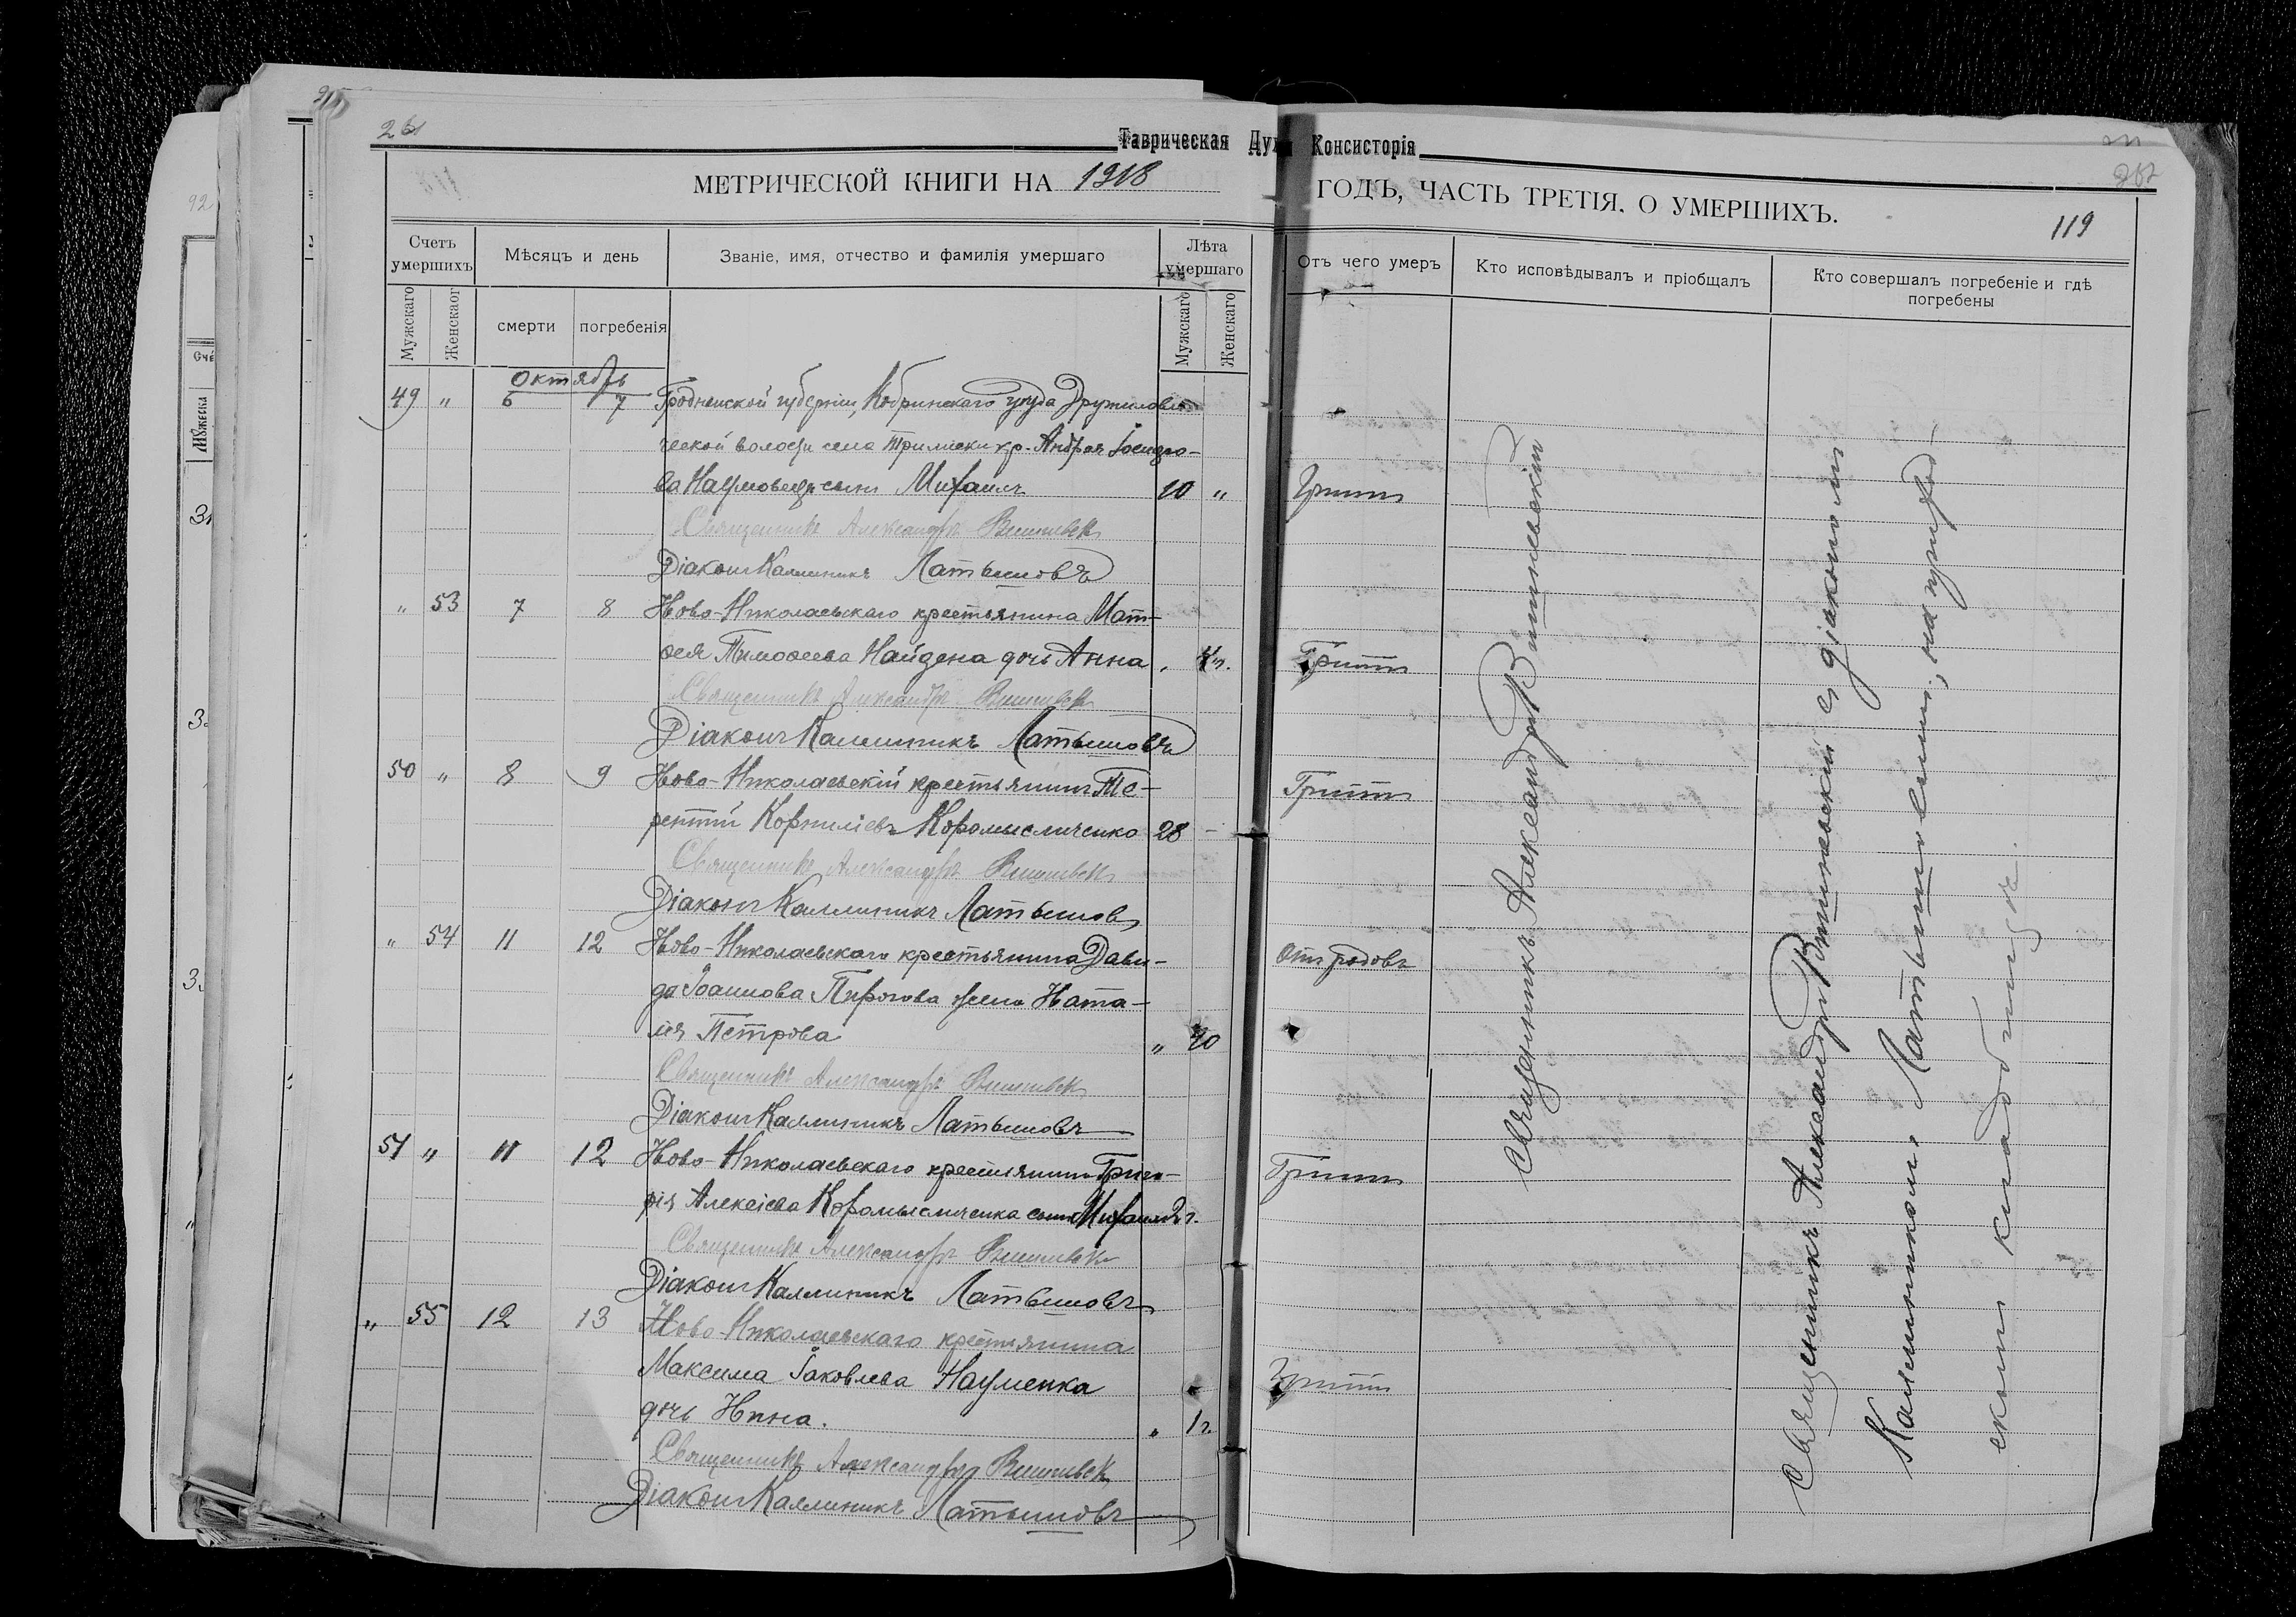 261
Таврическая Дух Консисторія
МЕТРИЧЕСКОЙ КНИГИ НА 1918 ГОДЪ, ЧАСТЬ ТРЕТІЯ, О УМЕРШИХЪ.
262
119
92
Счетъ умершихъ
Мѣсяцъ и день
Званіе, имя, отчество и фамилія умершаго
Лѣта умершаго
Отъ чего умеръ
Кто исповѣдывалъ и пріобщалъ
Кто совершалъ погребеніе и гдѣ погребены
Мужскаго
Женскаог
смерти
погребенія
Мужскаго
Женскаго
Октябрь
49 " 6 7 Гродненской губерніи, Кобринскаго уѣзда Дружилови-
ческой волости села кр. Андрея Іосифо-
ва сынъ Михаилъ 10 " Гриппъ
Священникъ Александръ Вишневск
Діаконъ Каллиникъ Латышовъ
" 53 7 8 Ново-Николаевскаго крестьянина Мат-
ѳея Тимоѳеева Найдена дочь Анна " Гриппъ
Священникъ Александръ Вишневск
Діаконъ Каллиникъ Латышовъ
50 " 8 9 Ново-Николаевскій крестьянинъ Те- Гриппъ
рентій Корниліевъ Коромысличенко 28 -
Священникъ Александръ Вишневск
Діаконъ Каллиникъ Латышовъ
" 54 11 12 Ново-Николаевскаго крестьянина Дави- Отъ родовъ
да Іоаннова Пирогова жена Ната-
лія Петрова " 40
Священникъ Александръ Вишневск
Діаконъ Каллиникъ Латышовъ
51 " 11 12 Ново-Николаевскаго крестьянина Григо- Гриппъ
рія Алексіева Коромысличенка сынъ Михаилъ 2 г.
Священникъ Александръ Вишневск
Діаконъ Каллиникъ Латышовъ
" 55 12 13 Ново-Николаевскаго крестьянина
Максима Іаковлева Науменка Гриппъ
дочь Нина. " 1 г.
Священникъ Александръ Вишневск
Діаконъ Каллиникъ Латышовъ
Священникъ Александръ Вишневскій
Священникъ Александръ Вишневскій съ діакономъ
Каллиникомъ Латышовымъ, на приход-
скомъ кладбищѣ.